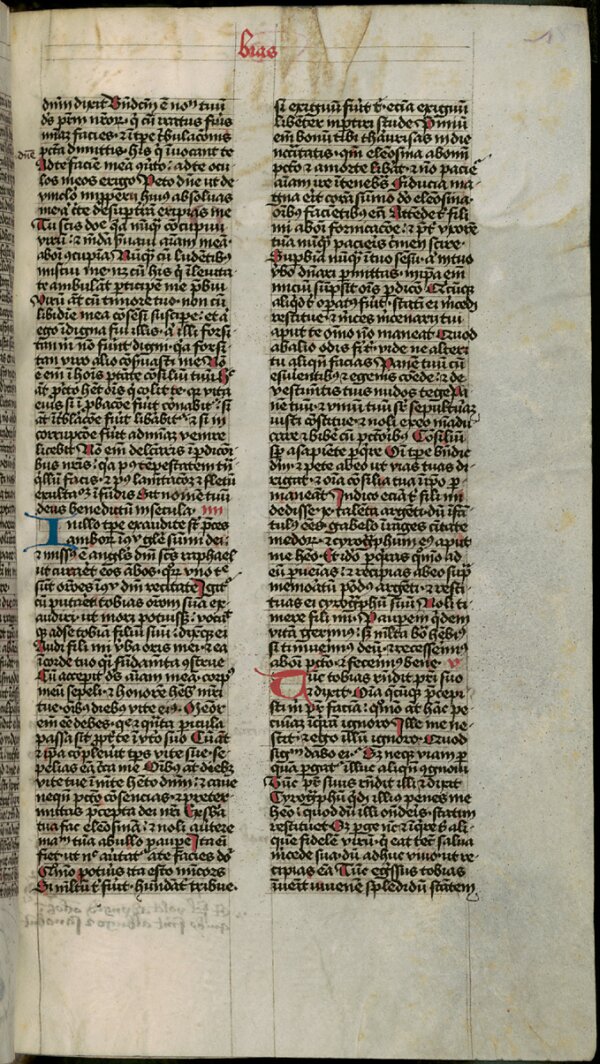 bias
dicm̄ dixit Bn̄dictū ē nomē tuū
ds̄ pr̄m nr̄or · q̇ cū iratus fuis
mīaz facies · et ī tpe t̓bulac̄onis
pctā dimittis · his q̇ īuocant te
Ad te faciē meā 9u̓to · ad te ocu
los meos erigo Peto dn̄e ut de
uinclo īpperii hui9 absoluas
me · a̓ c̓te desup t̓ram eripias me
Tu scis dn̄e q̓a nūq̄ 9cupiui
uirū · et mūdā s̓uaui aīam meā
ab oī 9cupīa Nūq̄ cū ludentib9
miscui me · neqz cū his q̇ ī leuitate
te ambulāt p̓ticipē me p̓bui
Virū āt cū timore tuo · non cū
libidīe mea cōsēsi suscipe · et a̓
ego īdigna fui illis · a̓ illi forsi
tan m̓ no fūnt digni · q̓a forsi
tan uiro alio cōs̓uasti me Nō
ē em̄ ī hoīs ptāte cōsiliū tuū · hoc
āt p̱ cto h̓t oīs q̇ colit te · q̓ uita
ei9 si ī p̱bac̄oe fuit corōabit̓ · si
āt ī t̓blac̄oe fuit lib̓abit̓ · et si in
corrupc̄oe fūit ad mīaz venire
licebit Nō em̄ delc̄aris ī p̱dic̄oi
bus nr̄is · q̓a p9 tēpestatem tn̄
q̇llū facis · et p9 lacrimac̄oz et fletū
exultac̄oz īfūdis Sit nomē tuū
deus benedictū in secula · iiii
In illo tpe exaudite s̄t p̓ces
amborum ī 9spectu glē sūmi dei ·
et miss9 ē angl̓s dn̄i sc̄s raphael
ut curaret eos ambos · q̄r uno te
sūt orōes ī 9spectu dn̄i recitate Igit̓
cū putaret tobias orōm suā ex
audiri · ut mori potuiss · vocāt
q̇ ad se tobiā filiū suū · dixitqz ei
Audi fili mi v̓ba oris mei · et ea
ī corde tuo q̇si fūdamta 9strue
Cū acceperit ds̄ aīam meā · corp9
meū sepeli · et honorē heb̓ mr̄i
tue · oīb9 dieb9 vite ei9 · Memor
em̄ ee debes · q̇ et q̇nta picula
passa sit pp̓ te ī vt̓o suo Cū āt
et ip̄a cōpleuit tps̄ vite sue · se
pelias eā cirā me Oīb9 āt dieb9
vite tue ī mēte h̓eto dn̄m · et caue
ne q̇n pctō cōsencias · et preter
mittas p̓cepta dei nr̄i Ex sb̄a
tua fac elēosinā · et noli au̓tere
faciē tuā ab ullo paupe Ita eī
fiet ut nec au̓tat̓ a te facies dn̄i
Quō potu̓is ita esto mīcors
Si mltū t̓ fuit · hūdāt̓ tribue ·
si exiguū fuīt t̓ · eciā exiguū
libent̓ imptiri stude Pmiū
em̄ bonū tibi thaurisas in die
nccītatis · qm̄ elēosīa ab omī
pctō et a morte libāt · et nō paciet̓
aīam ire ī tenebras Fiducia ma
gna erit corā sūmo dō elēosīa ·
oīb9 facietib9 eā Attēde t̓ fili
mi ab oī fornicac̄oe · et pt̓ uxorē
tuā nūq̄ paciaris crimen scire ·
Supbiā nūq̄ ī tuo sesu · a̓ ī tuo
v̓bo dn̄ari p̓mittas · ī ip̄a em̄
iniciū sūpsit oīs p̱dico Quicūqz
aliqd t̓ op̓at9 fuīt · statī ei m̓cedē
restitue · et m̓ces m̓cēnarii tui
aput te oīno nō maneat Quod
ab alio odis fi̓ t̓ · vide ne alteri
tu aliq̄n facias Panē tuū cū
esuientib9 et egenis 9ede · et de
vestimtis tuis nudos tege Pa
nē tuū · et vinū tuū sr̄ sepulturā
iusti cōstitue · et noli ex eo mādu
care et bibe̓ cū pctōrib9 Cōsiliū
sp̱ a sapiēte pq̇re Om̄i tpe bn̄dic
dm̄ · et pete ab eo ut vias tuas di
rigat · et oīa cōsilia tua ī ip̄o p̱
maneāt Indico eciā t̓ fili mi
dedisse · x · talēta argēti · dū īfan
tul9 ēes · gabelo ī rages ciuitate
medorum · et cyrogphū ei9 aput
me h̓eo · Et ido p̱q̇ras quō ad
eū pueias · et recipias ab eo sup̓
memoratū pōd9 argēti · et resti
tuas ei cyrogphū suū Noli ti
mere fili mi · Paupem q̇dem
vitā gerim9 · sz mlta bōa heb̓i9
si timuerim9 deū · et recesserim9
ab oī pctō · et fecerim9 bene · v
Tūc tobias rn̄dit pr̄i suo
et dixit · Oīa q̄cūqz p̓cepi
sti m̓ pr̄ faciā · quō āt hāc pe
cuiaz īq̇rā ignoro · Ille me ne
scit · et ego illū ignoro · Quod
sig̓m dabo ei · Sz neqz viam p̱
quā p̱gat̓ illuc aliqn̄ 9gnoui
Tūc pr̄ suus rn̄dit illi et dixit
Cyrogphū q̇dē illi9 penes me
h̓eo · quod dū illi ondēis · statim
restituet Sz p̱ge nc̄ · et īq̇re t̓ aliq̓
que fidelē virū · q̇ eat tec̄ salua
m̓cede sua · dū adhuc viuo · ut re
cipias eā Tūc eg̓ssus tobias
īuēit iuuenē splēdidū stātem